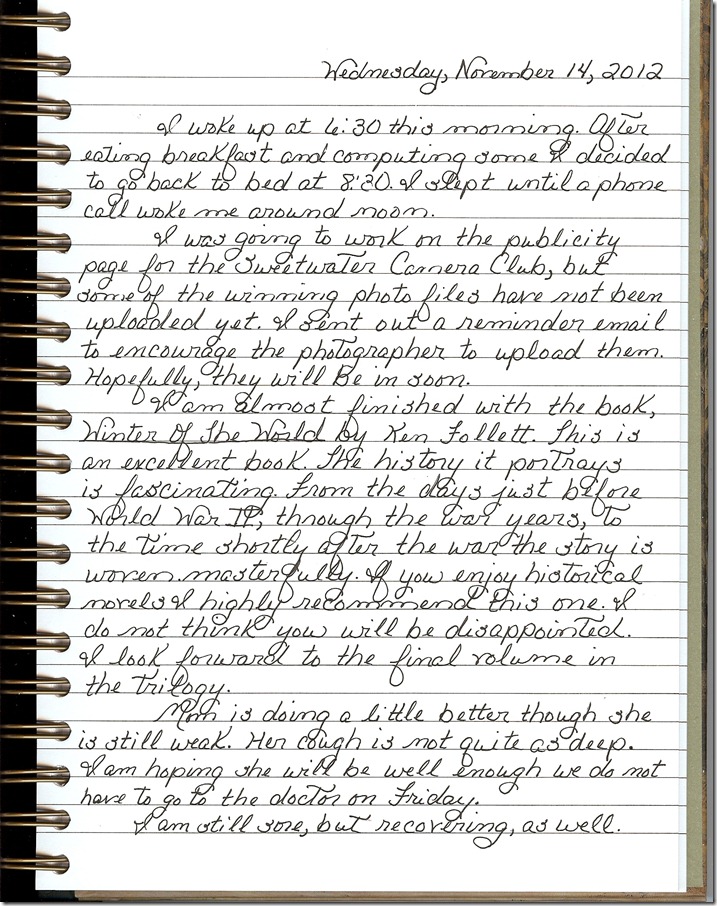 Wednesday, November 14, 2012
I woke up at 6:30 this morning. After
eating breakfast and computing some I decided
to go back to bed at 8:30. I slept until a phone
call woke me around noon.
I was going to work on the publicity
page for the Sweetwater Camera Club, but
some of the winning photo files have not been
uploaded yet. I sent out a reminder email
to encourage the photographer to upload them.
Hopefully, they will be in soon.
I am almost finished with the book,
Winter Of The World by Ken Follett. This is
an excellent book. The history it portrays
is fascinating. From the days just before
World War II, through the war years, to
the time shortly after the war the story is
woven masterfully. If you enjoy historical
novels I highly recommend this one. I
do not think you will be disappointed.
I look forward to the final volume in
the trilogy.
Mom is doing a little better though she
is still weak. Her cough is not quite as deep.
I am hoping she will be well enough we do not
have to go to the doctor on Friday.
I am still sore, but recovering, as well.